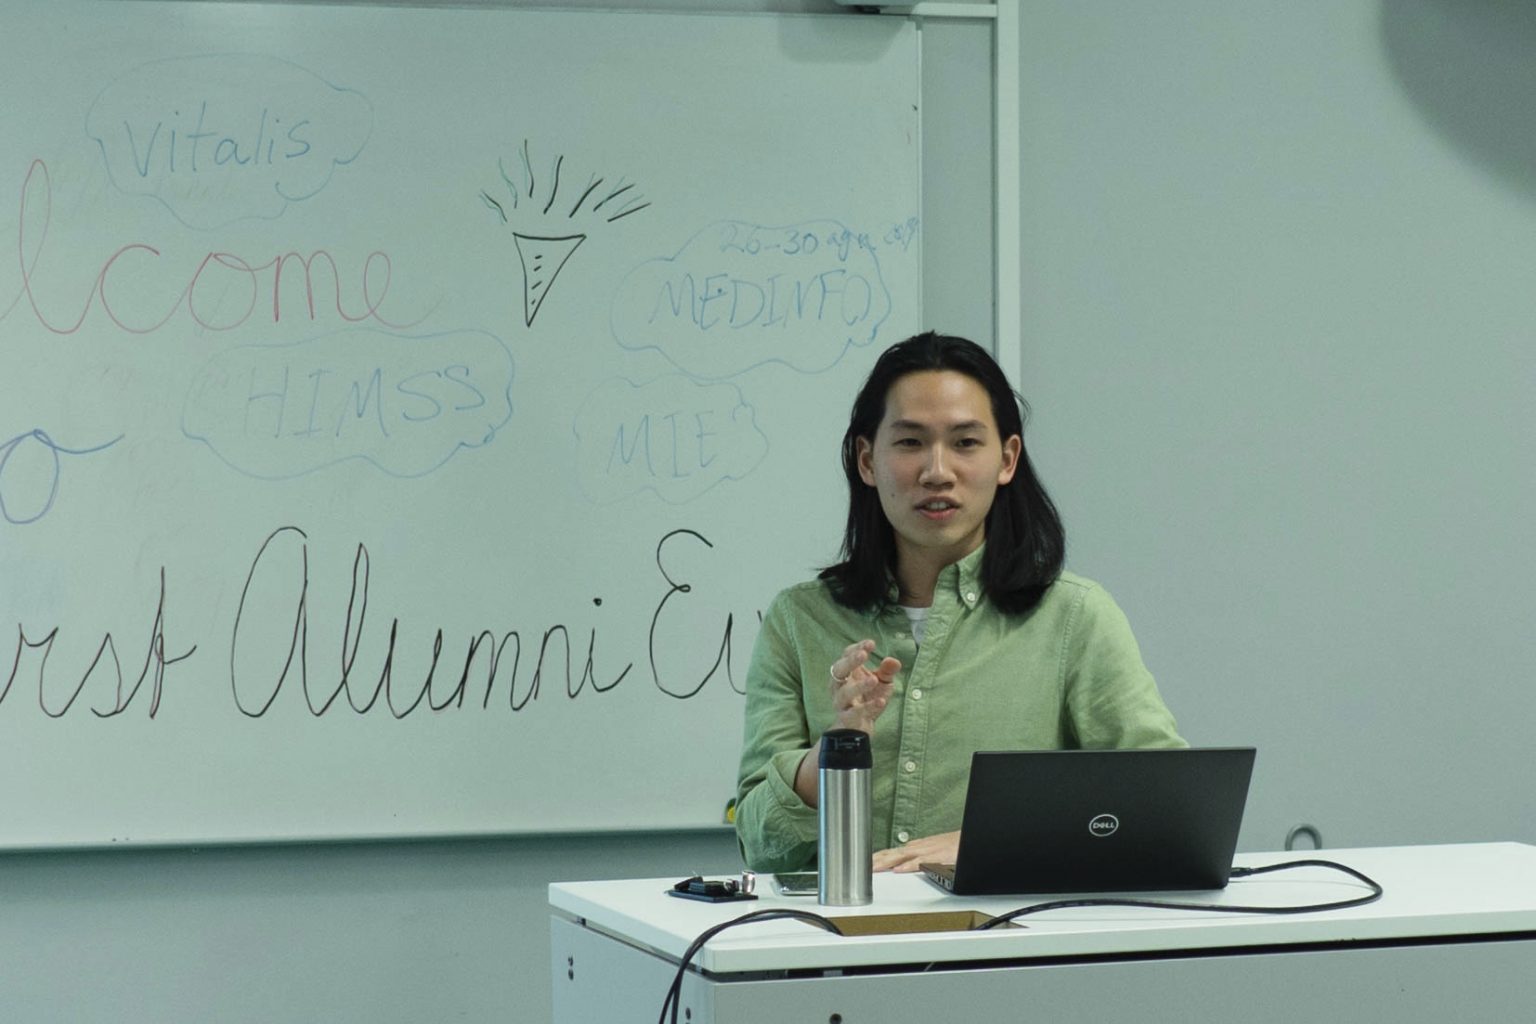 Vitalis
lcome
26-30 aug
MEDINFO
HIMSS
MIE
o
rst Alumni Ev
DELL